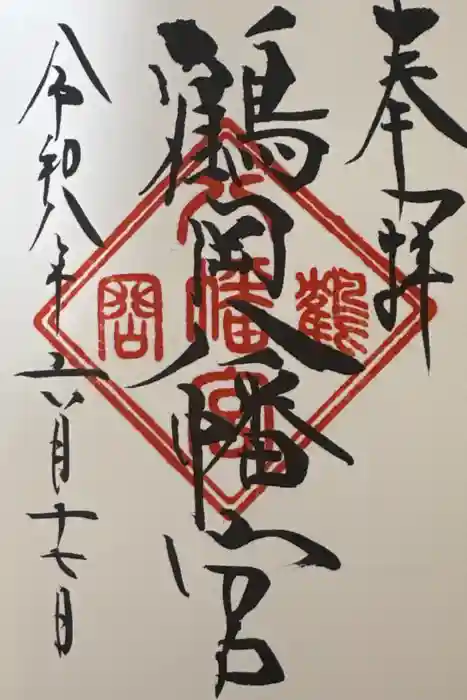 奉拝
鶴岡八幡宮
令和八年六月十七日
鶴
八幡宮
岡